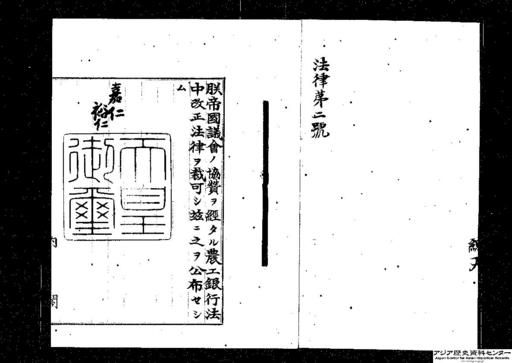 法律第二號
朕帝國議會ノ協贊ヲ經タル農工銀行法
中改正法律ヲ裁可シ玆ニ之ヲ公布セシ
ム
嘉仁
裕仁
天皇
御璽
内閣
アジア歴史資料センター
Japan Center for Asian Historical Records